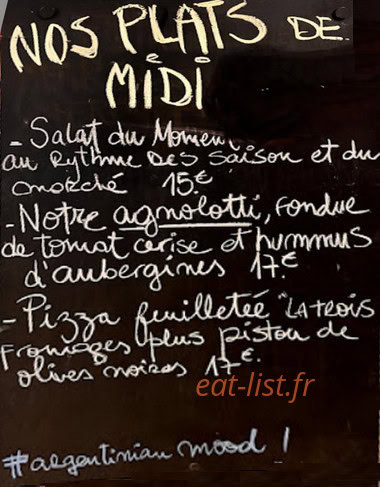 NOS PLATS DE
MIDI
- Salat du Momen
au Rythme DES saison et du
marché 15.€
- Notre agnolotti, fondue
de tomat cerise et hummus
d'aubergines 17.€
- Pizza feuilleteé "LA TROIS
Fromages" plus piston de
olives noires 17€.
eat-list.fr
#argentinian mood !